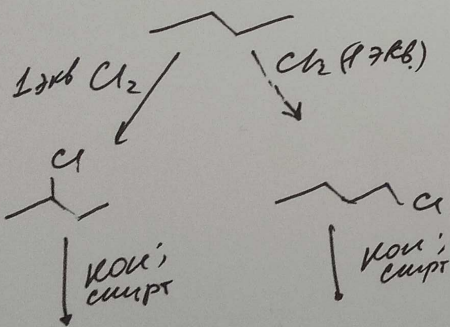 1 экв Cl₂
Cl₂ (1 экв.)
Cl
Cl
КОН;
спирт
КОН;
спирт